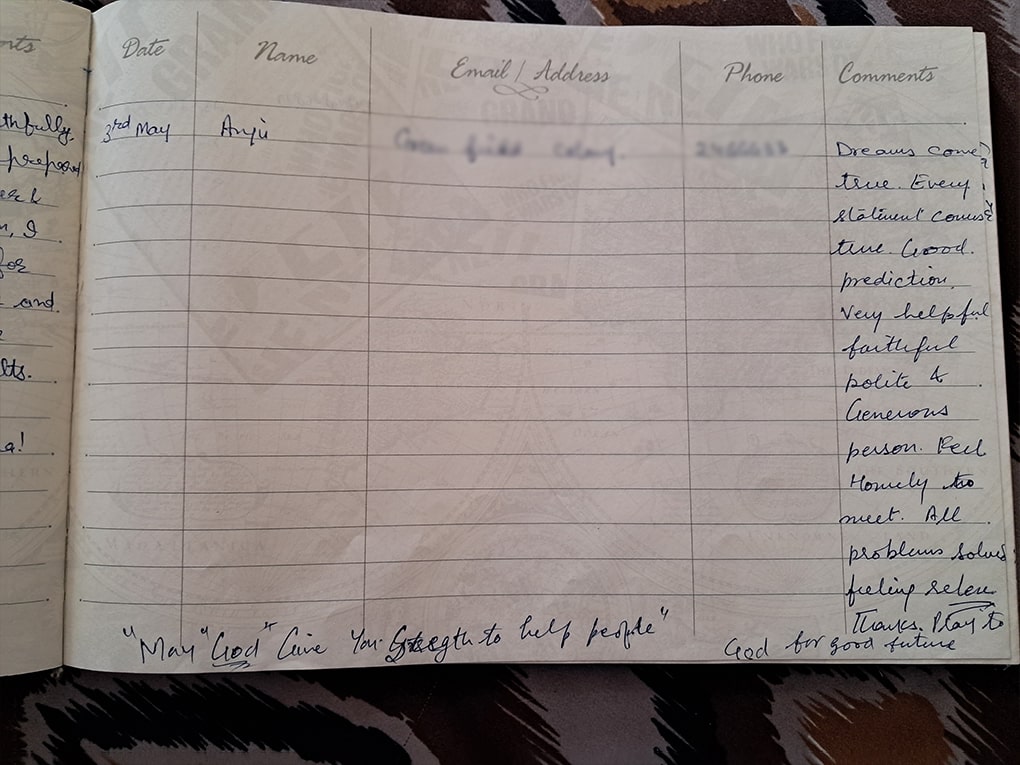 nts
Date Name Email / Address Phone Comments
thfully.
3rd May Anju
Dreams come
true. Every
statiment comes
true. Good.
prediction.
Very helpful
faithful
polite &
Generous
person. Feel
Homely to
meet. All
problems solved
feeling
Thanks. Pray to
God for good future
"May "God" Give You to help people"
n, I
for
and
lts.
a!